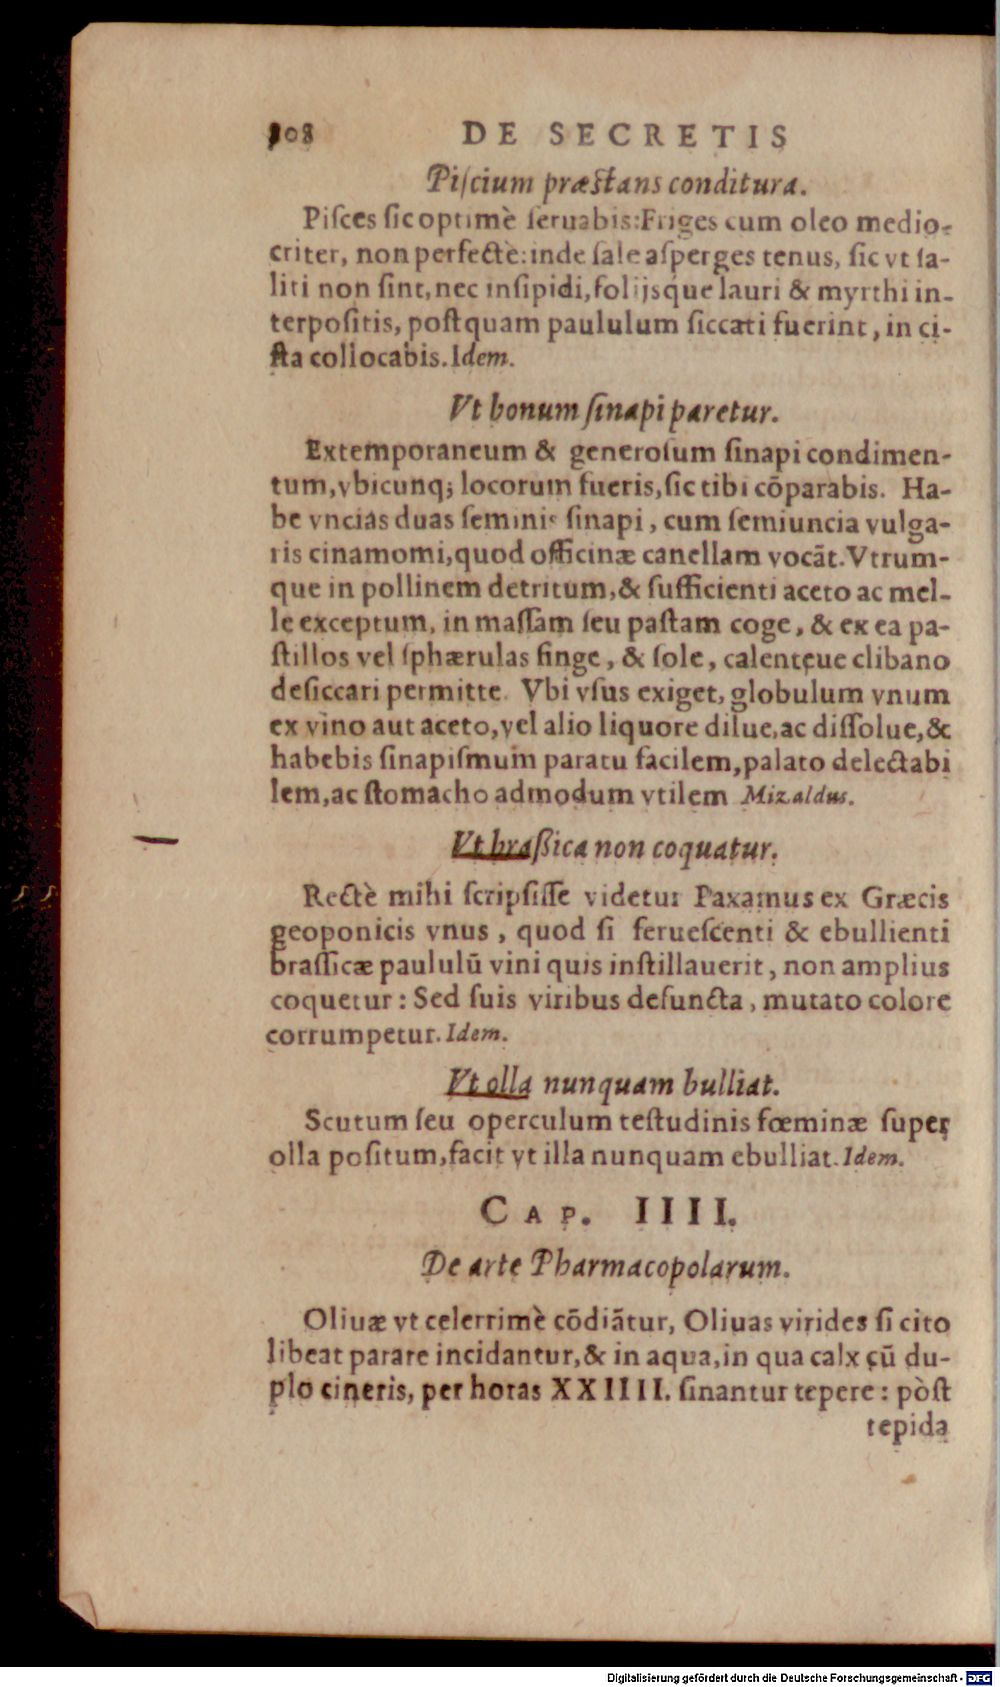 108 DE SECRETIS
Piſcium præſtans conditura.
Piſces ſic optimè ſeruabis:Friges cum oleo medio-
criter, non perfectè: inde ſale aſperges tenus, ſic vt ſa-
liti non ſint, nec inſipidi, folijsq́ue lauri & myrthi in-
terpoſitis, poſtquam paululum ſiccati fuerint, in ci-
ſta collocabis. Idem.
Vt bonum ſinapi paretur.
Extemporaneum & generoſum ſinapi condimen-
tum, vbicunq; locorum fueris, ſic tibi cōparabis. Ha-
be vncias duas ſeminis ſinapi, cum ſemiuncia vulga-
ris cinamomi, quod officinæ canellam vocāt. Vtrum-
que in pollinem detritum, & ſufficienti aceto ac mel-
le exceptum, in maſſam ſeu paſtam coge, & ex ea pa-
ſtillos vel ſphærulas finge, & ſole, calentęue clibano
deſiccari permitte. Vbi vſus exiget, globulum vnum
ex vino aut aceto, vel alio liquore dilue, ac diſſolue, &
habebis ſinapiſmum paratu facilem, palato delectabi
lem, ac ſtomacho admodum vtilem Mizaldus.
Vt braßica non coquatur.
Rectè mihi ſcripſiſſe videtur Paxamus ex Græcis
geoponicis vnus, quod ſi ferueſcenti & ebullienti
braſſicæ paululū vini quis inſtillauerit, non amplius
coquetur: Sed ſuis viribus defuncta, mutato colore
corrumpetur. Idem.
Vt olla nunquam bulliat.
Scutum ſeu operculum teſtudinis fœminæ ſuper
olla poſitum, facit vt illa nunquam ebulliat. Idem.
CAP. IIII.
De arte Pharmacopolarum.
Oliuæ vt celerrimè cōdiātur, Oliuas virides ſi cito
libeat parare incidantur, & in aqua, in qua calx cū du-
plo cineris, per horas XXIIII. ſinantur tepere: pòſt
tepida
Digitalisierung gefördert durch die Deutsche Forschungsgemeinschaft - DFG